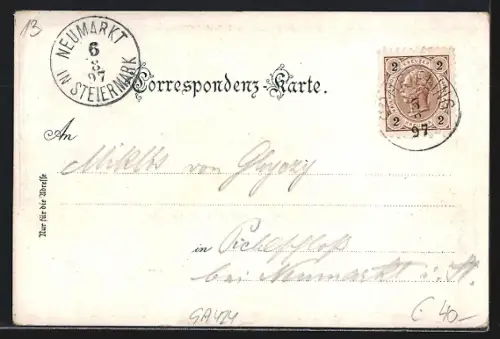 13
NEUMARKT
6
8
97
IN STEIERMARK
2 2
2 2
97
Correspondenz-Karte.
An
Miklós von
in Pichlschloß
bei Neumarkt i. St.
Nur für die Adresse
40-